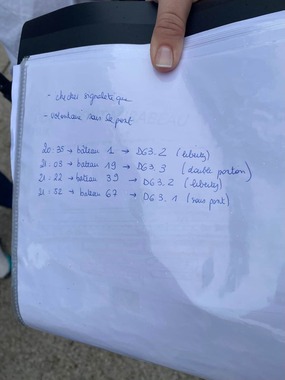 - checker signalétique
- volontaire sous le pont
20:35 → bateau 1 → DG3.2 (liberty)
21:03 → bateau 19 → DG3.3 (double portion)
21:22 → bateau 39 → DG3.2 (liberty)
21:52 → bateau 67 → DG3.1 (sous pont)